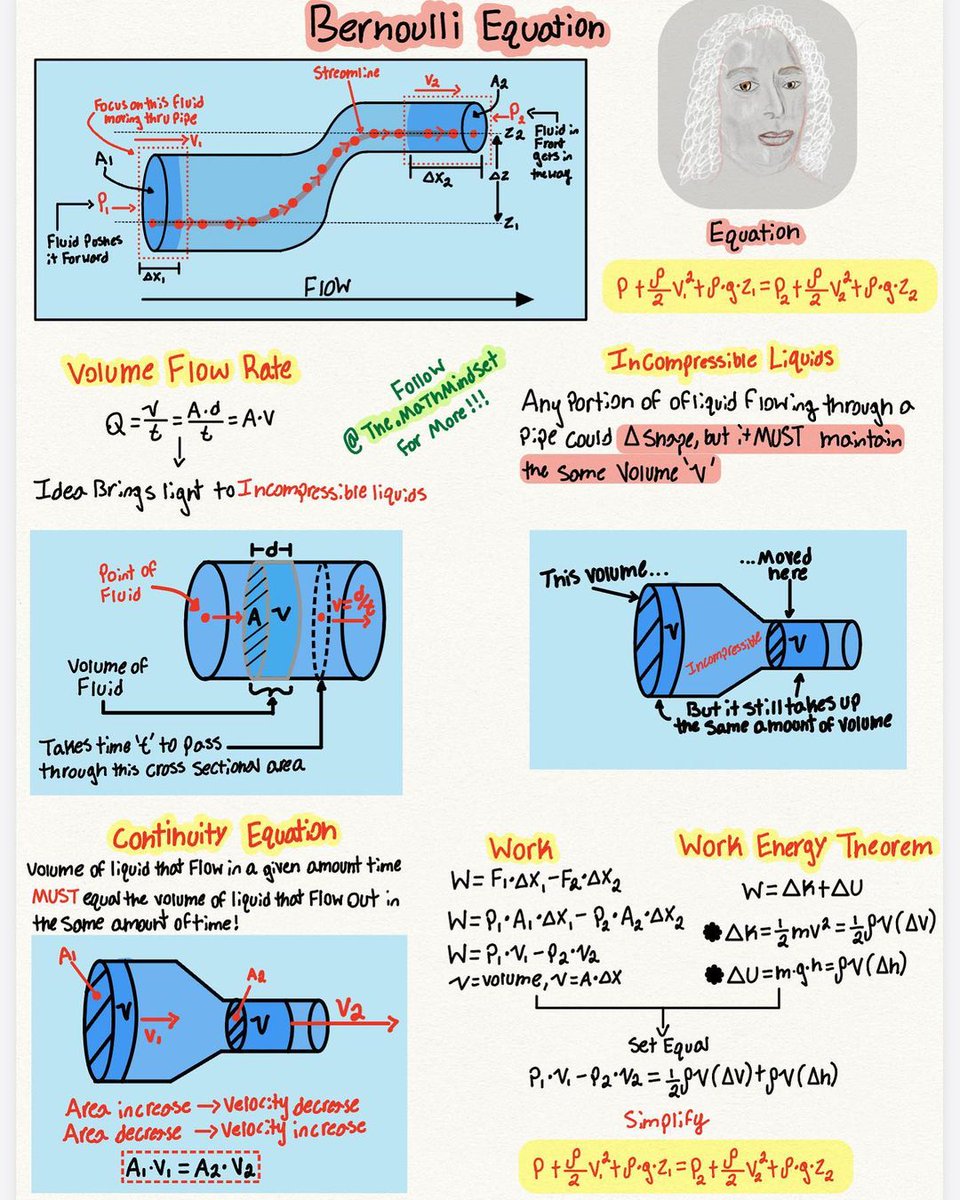 Bernoulli Equation
Streamline
V₂
A₂
Focus on this Fluid
moving thru Pipe
V₁
A₁
P₁
P₂
Z₂
Fluid in
Front
gets in
the way
ΔX₂
ΔZ
Z₁
Fluid Pushes
it Forward
ΔX₁
Flow
Equation
P + ρ/2 V₁² + ρ·g·Z₁ = P₂ + ρ/2 V₂² + ρ·g·Z₂
Volume Flow Rate
Q = V/t = A·d/t = A·V
Idea Brings light to Incompressible liquids
Follow
@The.MaThMindset
For More!!!
Incompressible Liquids
Any Portion of of liquid flowing through a
Pipe could Δ Shape, but it MUST maintain
the same Volume 'V'
d
Point of
Fluid
A
V
V=d/t
Volume of
Fluid
Takes time 't' to pass
through this cross sectional area
This volume...
...Moved
here
V
Incompressible
V
But it still takes up
the same amount of volume
Continuity Equation
Volume of liquid that Flow in a given amount time
MUST equal the volume of liquid that Flow Out in
the Same amount of time!
A₁
A₂
V
V₁
V
V₂
Area increase → Velocity decrease
Area decrease → Velocity increase
A₁·V₁ = A₂·V₂
Work
W = F₁·ΔX₁ - F₂·ΔX₂
W = P₁·A₁·ΔX₁ - P₂·A₂·ΔX₂
W = P₁·V₁ - P₂·V₂
V = volume, V = A·ΔX
Work Energy Theorem
W = ΔK + ΔU
ΔK = ½mv² = ½ρV(ΔV)
ΔU = m·g·h = ρV(Δh)
Set Equal
P₁·V₁ - P₂·V₂ = ½ρV(ΔV) + ρV(Δh)
Simplify
P + ρ/2 V₁² + ρ·g·Z₁ = P₂ + ρ/2 V₂² + ρ·g·Z₂